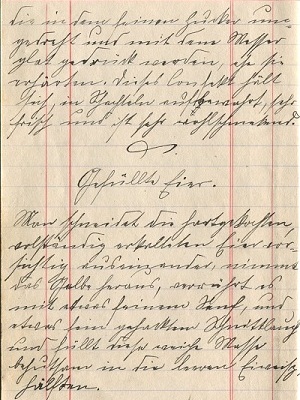 die in dem feinen Zucker um-
gedreht und mit dem Messer
glat gedrückt werden, ehe sie
erhärten. Dieses Konfekt hält
sich, in Schachteln aufbewahrt, sehr
frisch und ist sehr wohlschmekend.
Gefüllte Eier.
Man schneidet die hartgekochten,
vollständig erkalteten Eier vor-
sichtig auseinander, nimmt
das Gelbe heraus, verrührt es
mit etwas feinem Senf, und
etwas fein gehacktem Schnittlauch
und füllt diese weiche Masse
behutsam in die leeren Eiweiß-
hälften.